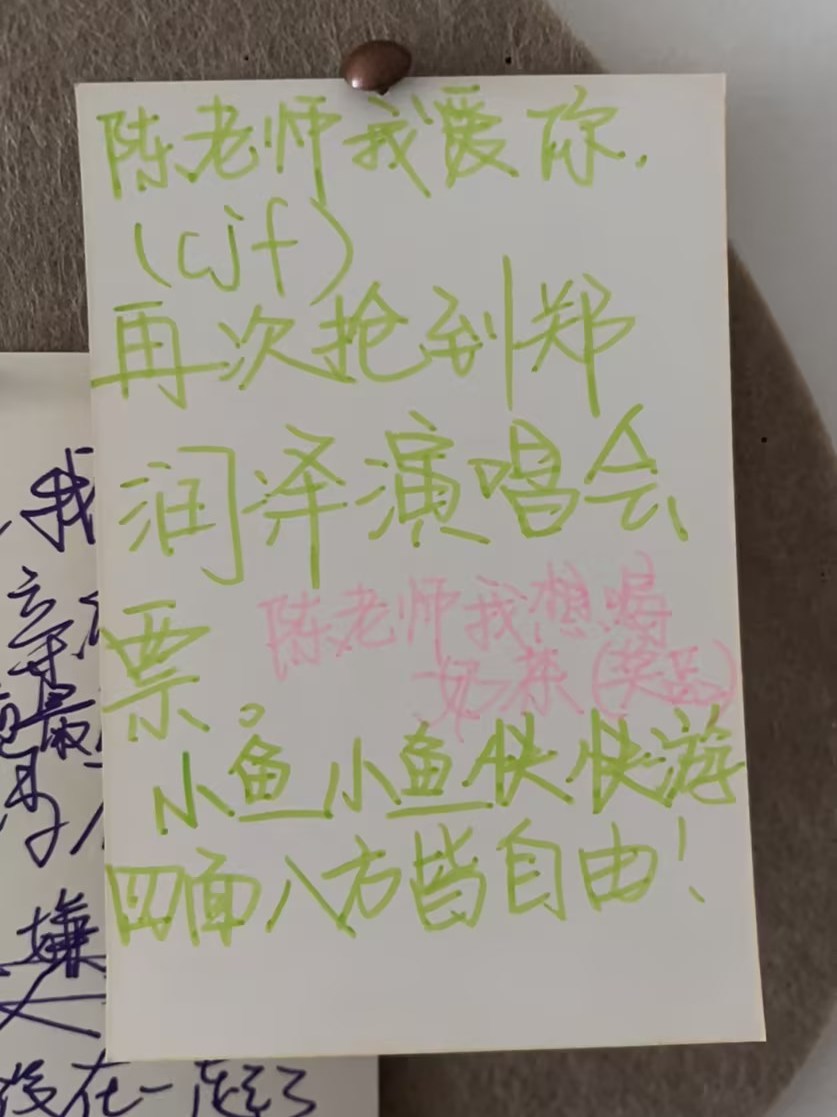 陈老师我爱你.
(cjf)
再次抢到郑
润泽演唱会
票。
陈老师我想喝
奶茶(笑
小鱼小鱼快快游
四面八方皆自由!
我
最
嫌
没在一起了